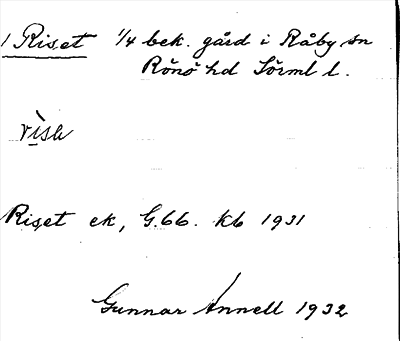 1 Riset 1/4 bek. gård i Råby sn
Rönö hd Sörml l.
rìsh
Riset ek, G.66. kb 1931
Gunnar Annell 1932